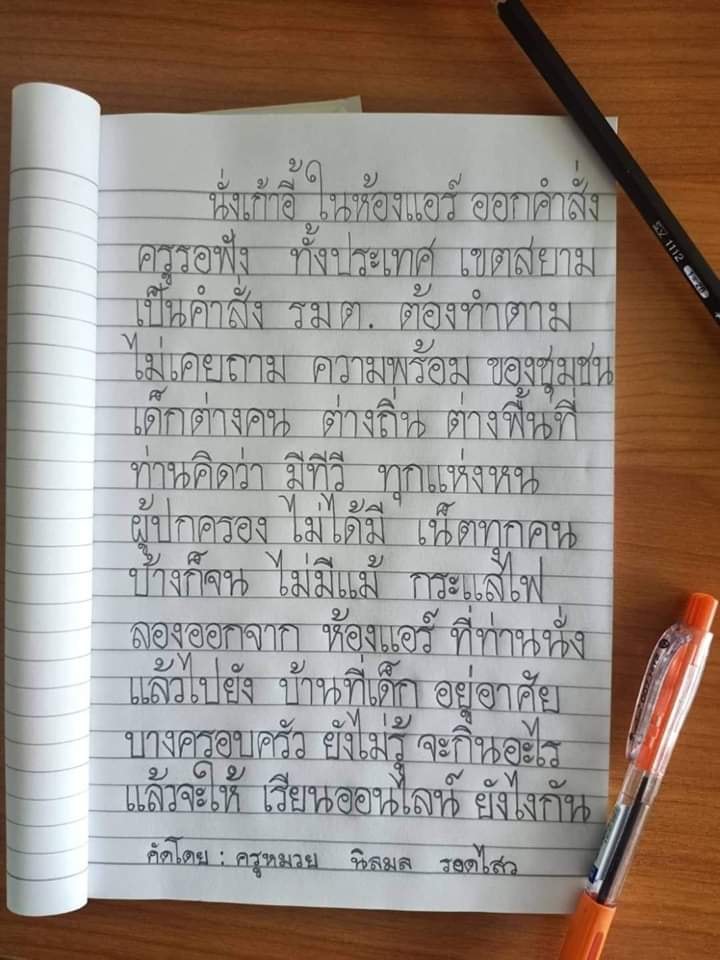 นั่งเก้าอี้ ในห้องแอร์ ออกคำสั่ง
ครูรอฟัง ทั้งประเทศ เขตสยาม
เป็นคำสั่ง รมต. ต้องทำตาม
ไม่เคยถาม ความพร้อม ของชุมชน
เด็กต่างคน ต่างถิ่น ต่างพื้นที่
ท่านคิดว่า มีทีวี ทุกแห่งหน
ผู้ปกครอง ไม่ได้มี เน็ตทุกคน
บ้างก็จน ไม่มีแม้ กระแสไฟ
ลองออกจาก ห้องแอร์ ที่ท่านนั่ง
แล้วไปยัง บ้านที่เด็ก อยู่อาศัย
บางครอบครัว ยังไม่รู้ จะกินอะไร
แล้วจะให้ เรียนออนไลน์ ยังไงกัน
คัดโดย : ครูหมวย นิลมล รอดไสว